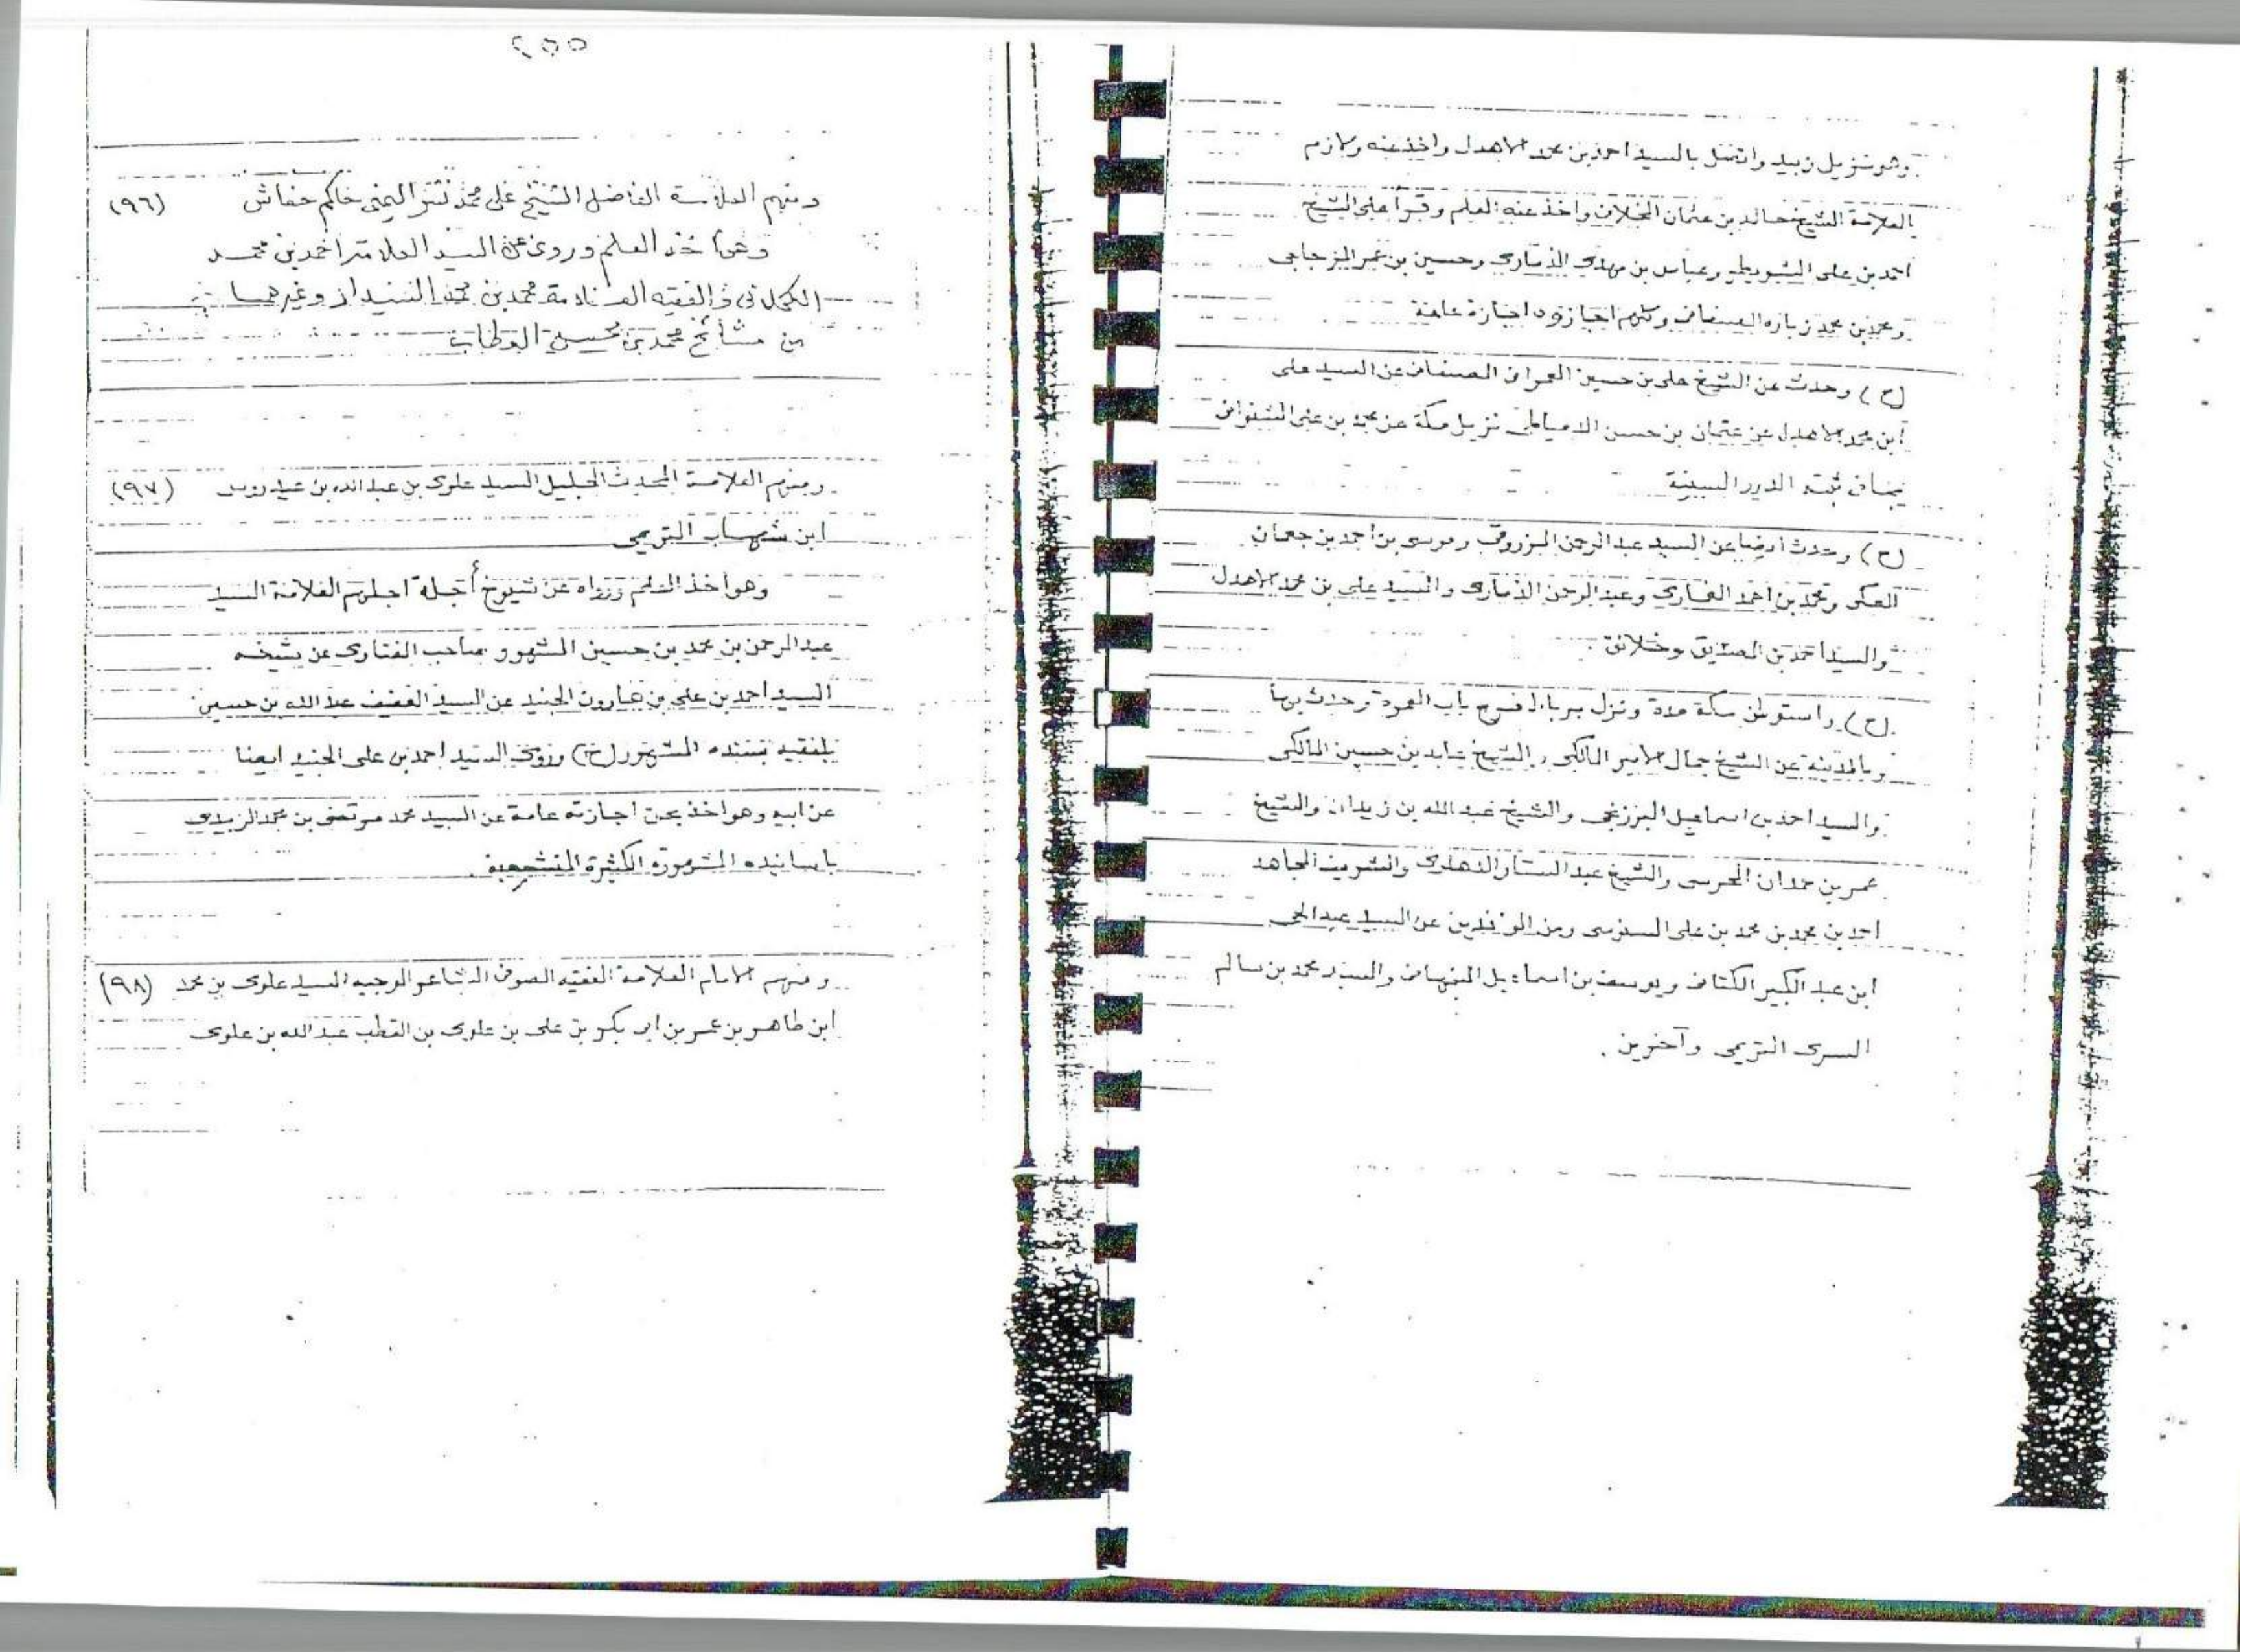 وهو نزيل زبيد واتصل بالسيد احمد بن محمد الاهدل واخذ عنه ولازم
العلامة الشيخ خالد بن عثمان الخلاف واخذ عنه العلم وقرأ على الشيخ
احمد بن على الشويطر وعباس بن مهدى الذمارى وحسين بن عمر المزجاجى
ومحمد بن محمد زباره الصنعانى وكلهم اجازوه اجازة عامة
(ح) وحدث عن الشيخ على بن حسين العمرانى الصنعانى عن السيد على
ابن محمد الاهدل عن عثمان بن حسن الدمياطى نزيل مكة عن محمد بن على الشنوانى
بما فى ثبته الدرر السنية
(ح) وحدث ايضا عن السيد عبد الرحمن المزروقى وموسى بن احمد بن جعمان
العكى ومحمد بن احمد الغمارى وعبد الرحمن الذمارى والسيد على بن محمد الاهدل
والسيد احمد بن الصديق وخلائق .
(ح) واستوطن مكة مدة ونزل برباط فى باب العمرة وحدث بها
وبالمدينة عن الشيخ جمال الامير المالكى والشيخ عابد بن حسين المالكى
والسيد احمد بن اسماعيل البرزنجى والشيخ عبد الله بن زيدان والشيخ
عمر بن حمدان المحرسى والشيخ عبد الستار الدهلوى والشريف المجاهد
احمد بن محمد بن محمد بن على السنوسى ومن الوافدين عن السيد عبد الحى
ابن عبد الكبير الكتانى ويوسف بن اسماعيل النبهانى والسيد محمد بن سالم
السرى التريمى وآخرين .
٢٥٥
(٩٦) ومنهم العلامة الفاضل الشيخ على محمد اليمنى حاكم حفاش
وهو اخذ العلم وروى عن السيد العلامة احمد بن محمد
الكحلانى والفقيه العلامة محمد بن محمد وغيرهما
من مشائخ محمد بن محسن
(٩٧) ومنهم العلامة المحدث الجليل السيد علوى بن عبد الله بن عيدروس
ابن شهاب التريمى
وهو اخذ العلم ورواه عن شيوخ أجلة اجلهم العلامة السيد
عبد الرحمن بن محمد بن حسين المشهور صاحب الفتاوى عن شيخه
السيد احمد بن على بن هارون الجنيد عن السيد العفيف عبد الله بن حسين
بلفقيه بسنده المشهور (ح) وروى السيد احمد بن على الجنيد ايضا
عن ابيه وهو اخذ بحق اجازته عامة عن السيد محمد مرتضى بن محمد الزبيدى
باسانيده المشهورة الكثيرة المتشعبة .
(٩٨) ومنهم الامام العلامة الفقيه الصوفى الشاعر الوجيه السيد علوى بن محمد
ابن طاهر بن عمر بن ابى بكر بن على بن علوى بن القطب عبد الله بن علوى